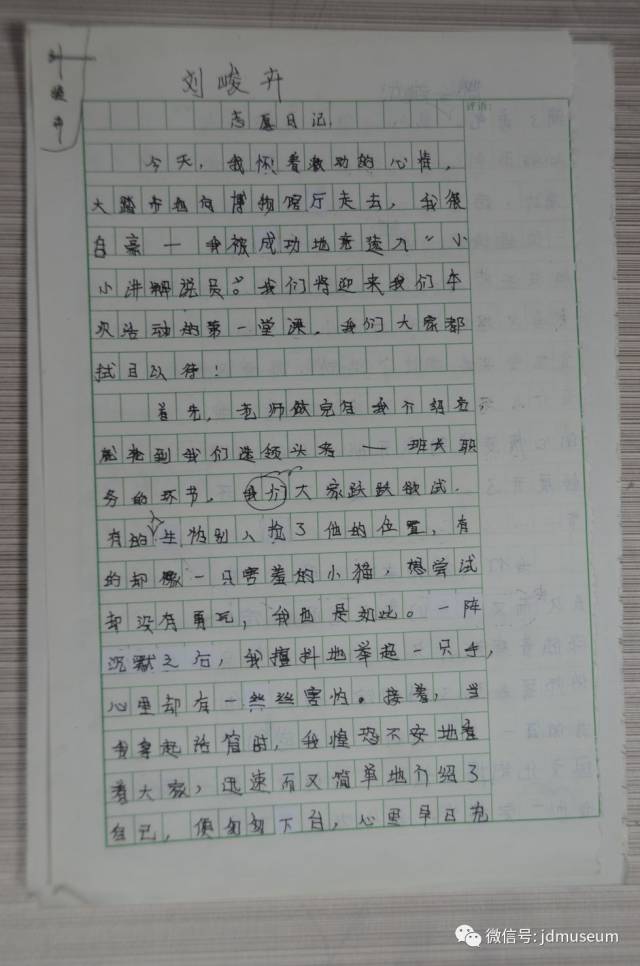 刘峻卉
刘峻卉
评语:
志愿日记
今天，我怀着激动的心情，
大踏步地向博物馆厅走去，我很
自豪一我被成功地竞选入“小
小讲解说员”。我们将迎来我们本
次活动的第一堂课，我们大家都
拭目以待！
首先，老师做完自我介绍后，
就轮到我们选领头者一班长职
务的环节。我们大家跃跃欲试.
有的生怕别人抢了他的位置，有
的却像一只害羞的小猫，想尝试
却没有勇气，我也是如此。一阵
沉默之后，我擅抖地举起一只手，
心里却有一丝丝害怕。接着，当
我拿起话筒时，我惶恐不安地看
着大家，迅速而又简单地介绍了
自己，便匆匆下台，心里早已充
微信号: jdmuseum